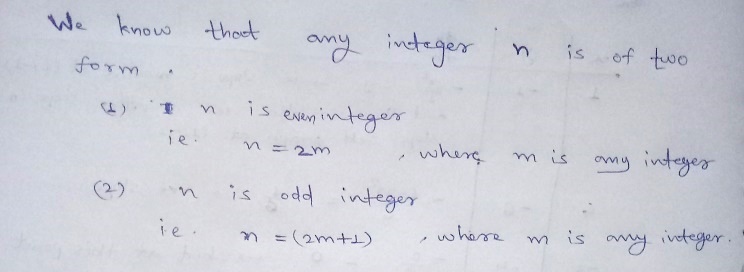 We know that any integer n is of two
form.
(1) n is even integer
ie. n = 2m , where m is any integer
(2) n is odd integer
ie. n = (2m+1) , where m is any integer.